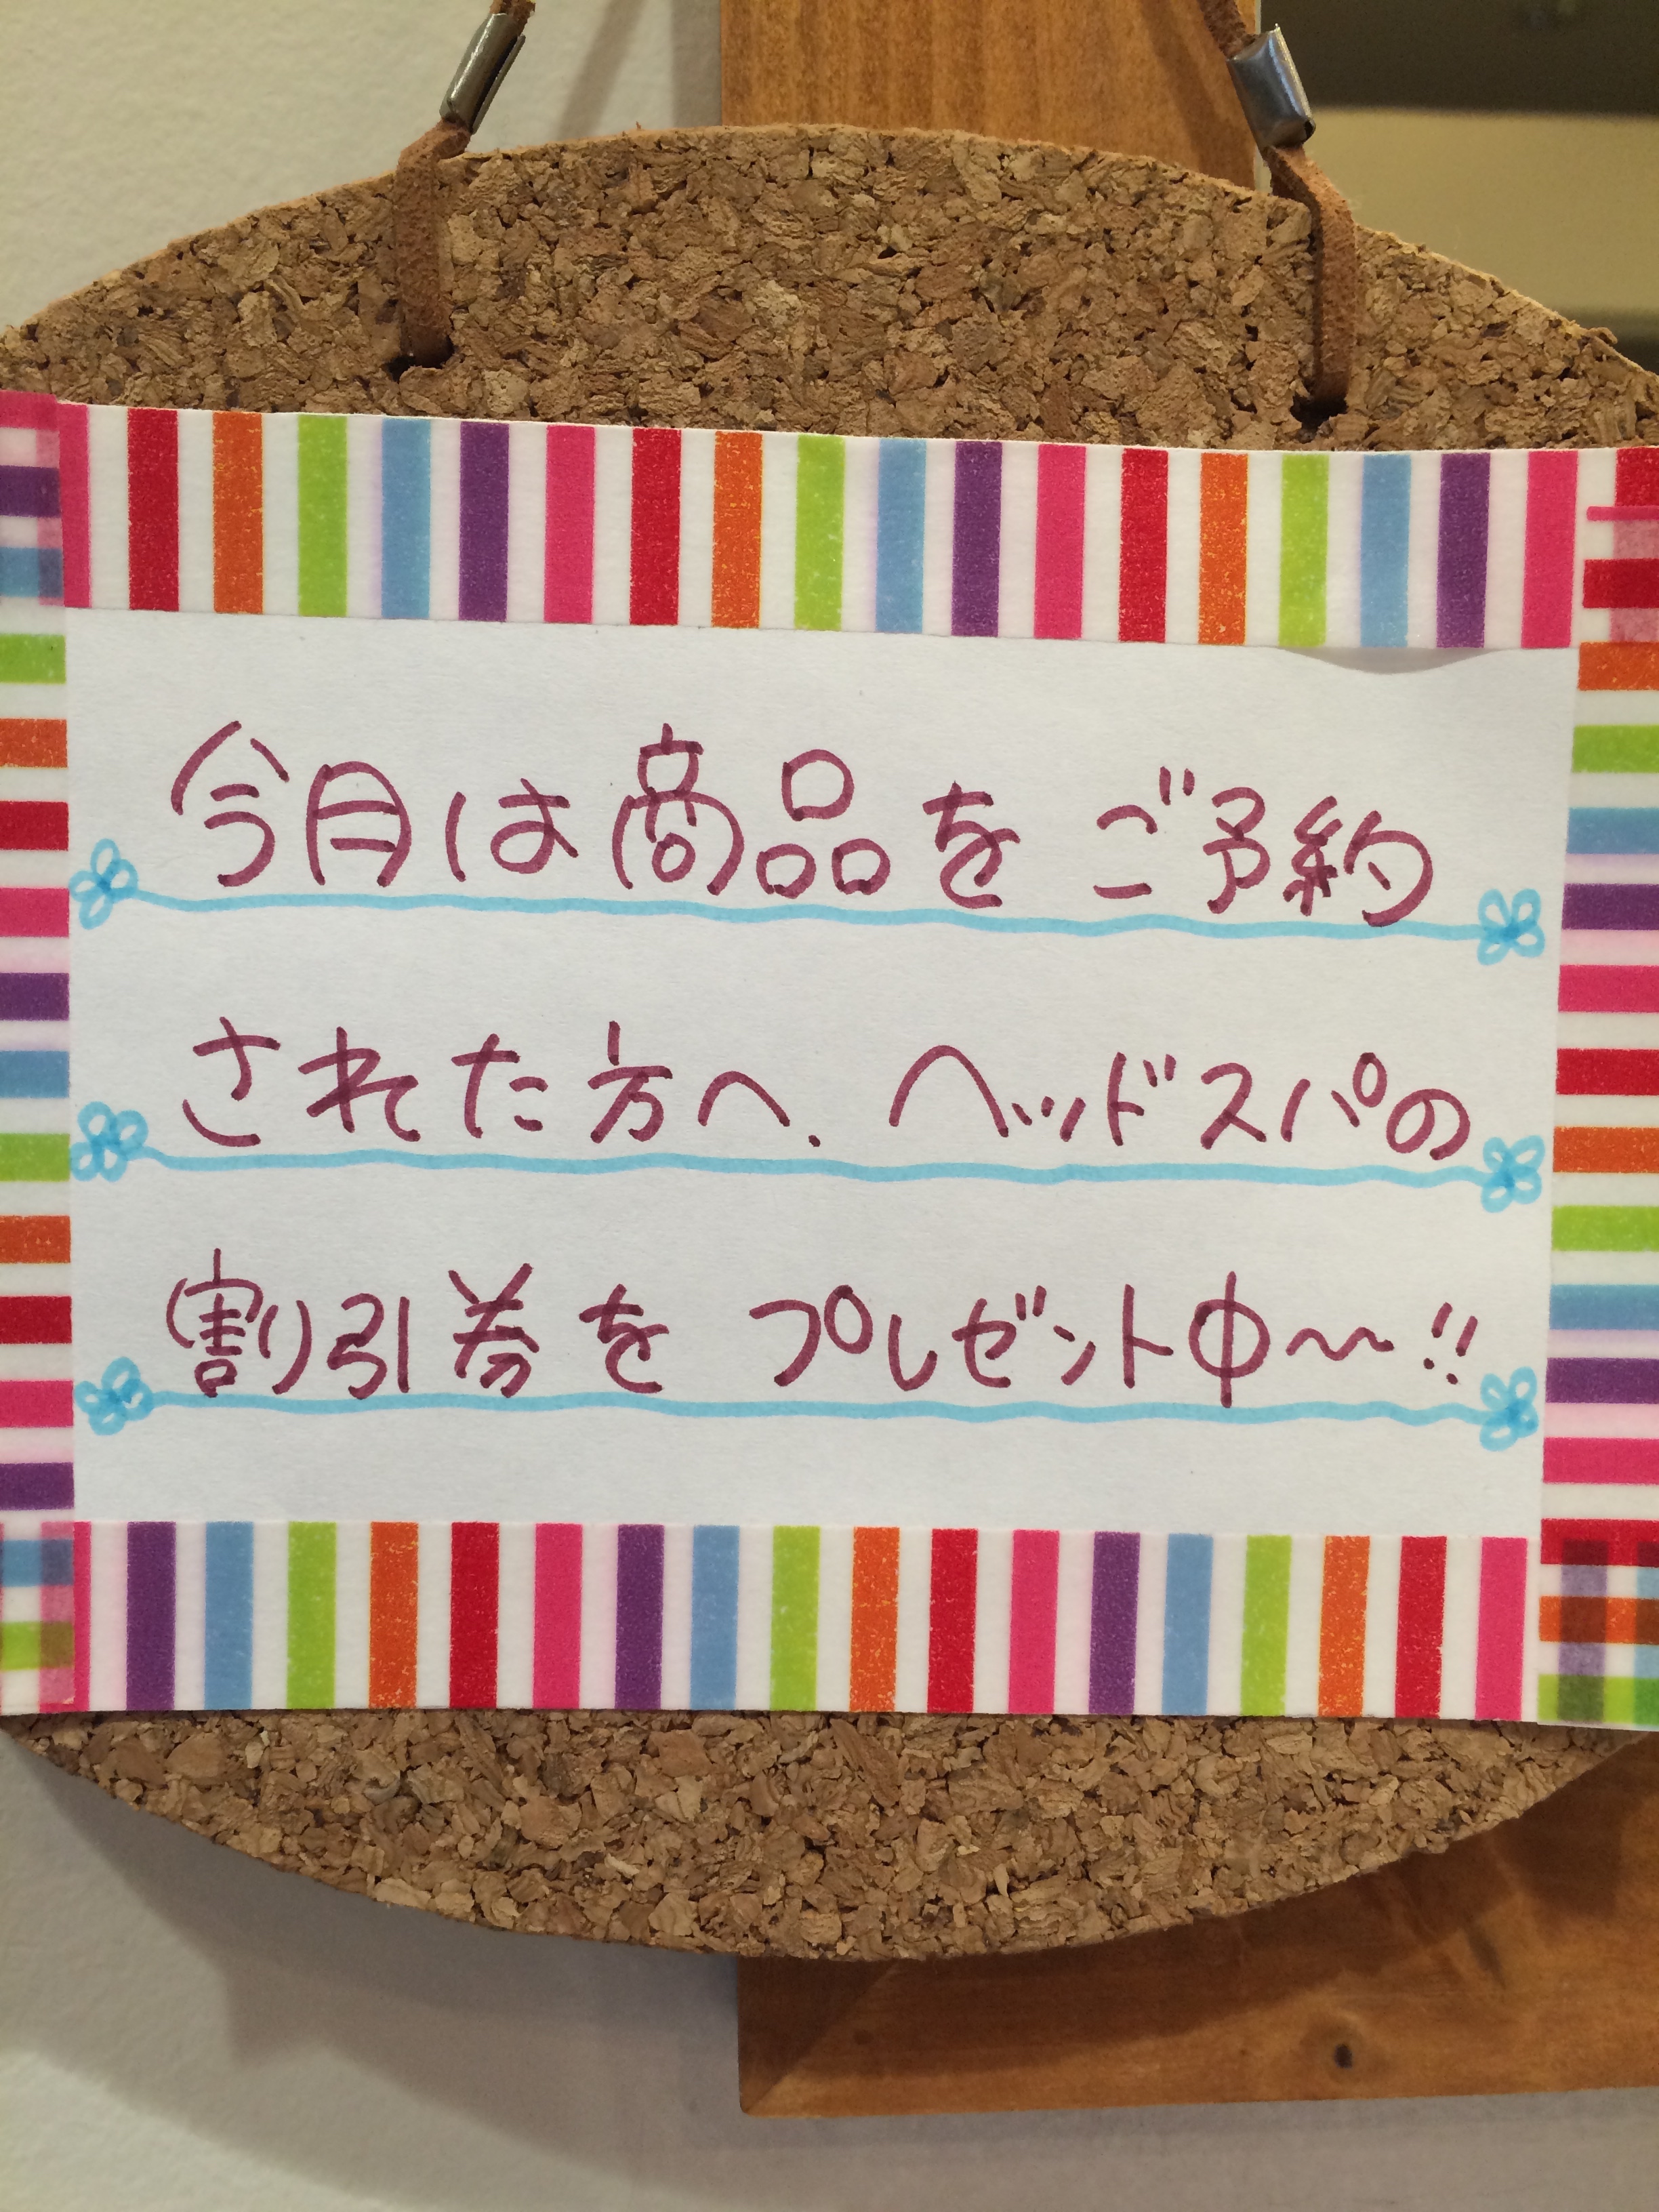 今月は商品をご予約
された方へ、ヘッドスパの
割引券をプレゼント中〜〜!!